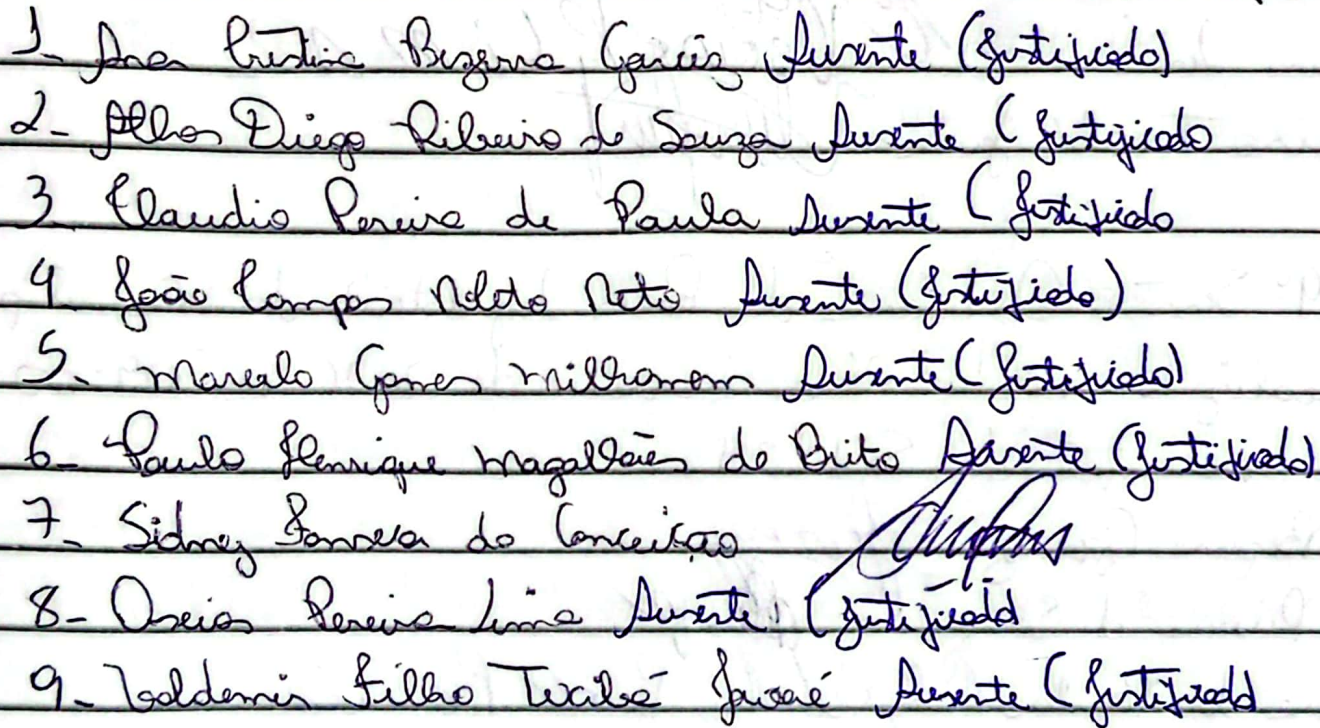 1- Ana Cristina Bezerra Garcêz Ausente (Justificado)
2- Athos Diego Ribeiro de Souza Ausente (Justificado
3 Claudio Pereira de Paula Ausente (Justificado
4 João Campos Neto Ausente (Justificado)
5- Marcelo Gomes milhomem Ausente (Justificado)
6- Paulo Henrique Magalhães de Brito Ausente (Justificado)
7- Sidney Fonseca da Conceição
8- Oseias Pereira Lima Ausente (Justificado
9- Filho Ausente (Justificado